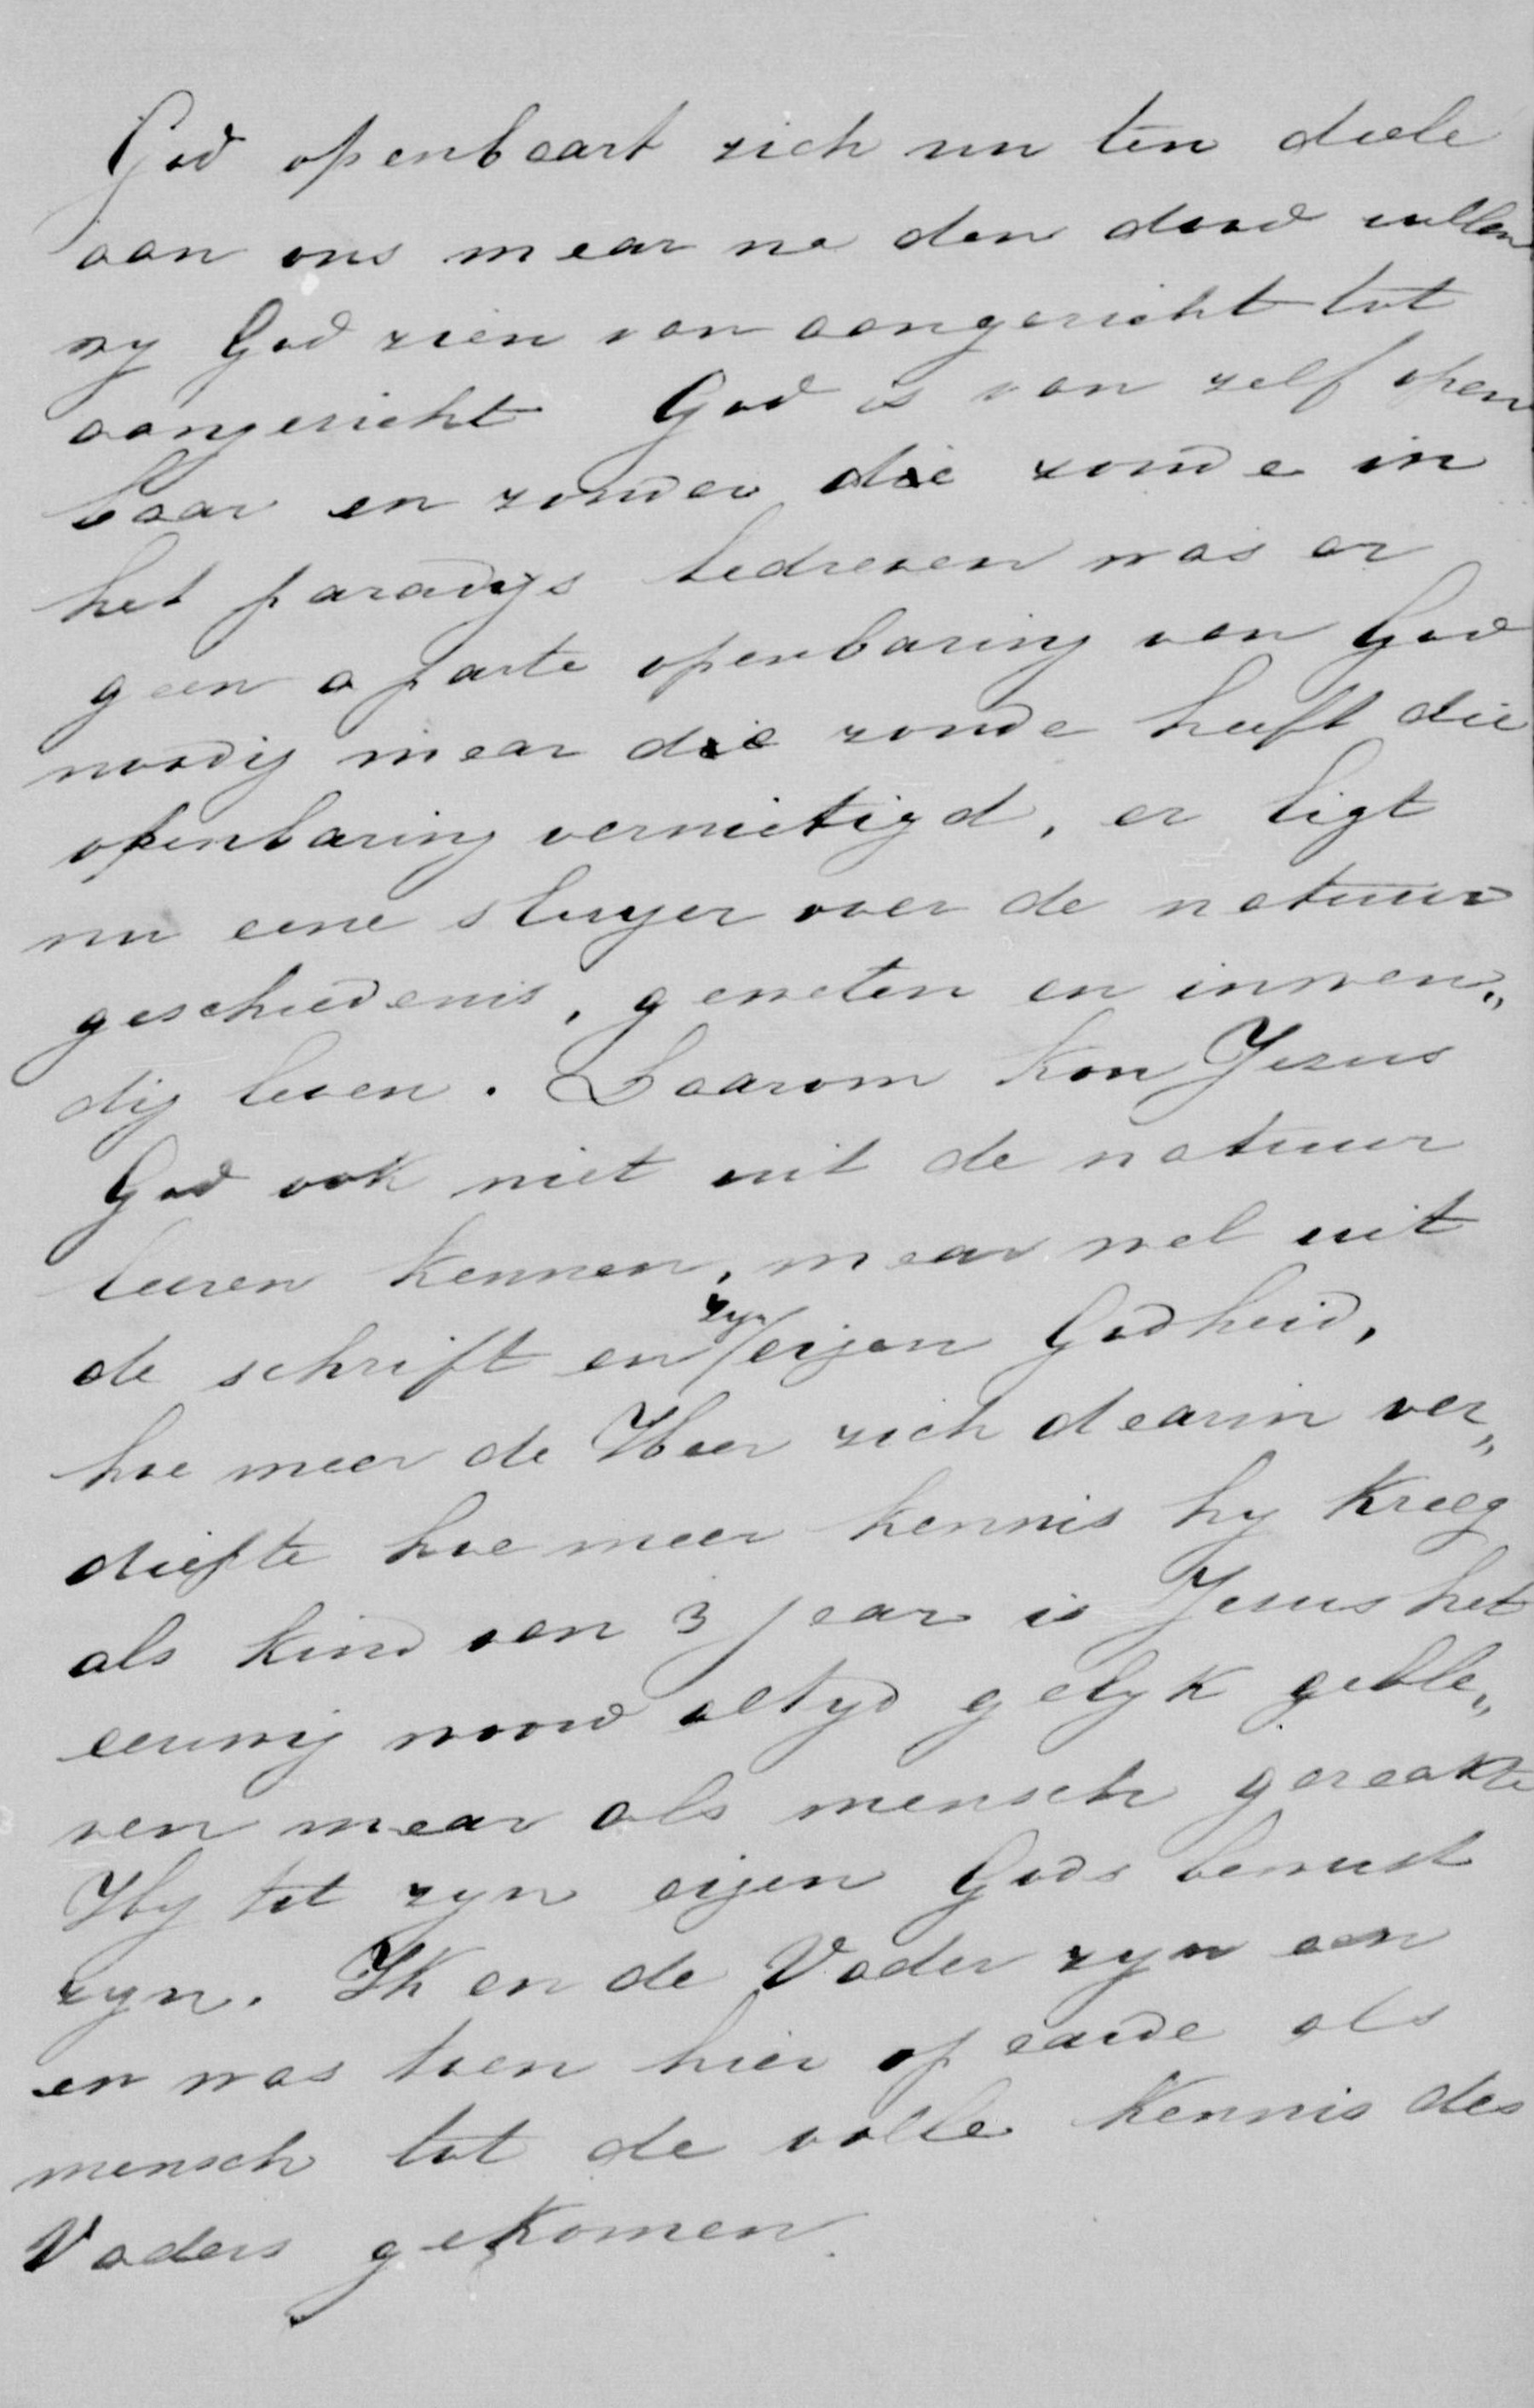 God openbaart zich nu ten deele
aan ons maar na den dood zullen
wy God zien van aangezicht tot
aangezicht God is van zelf open
baar en zonder die zonde in
het paradys bedreven was er
geen aparte openbaring van God
noodig maar die zonde heeft die
openbaring vernietigd, er ligt
nu eene sluyer over de natuur
geschiedenis, geweten en inwen„
dig leven. Daarom kon Jezus
God ook niet uit de natuur
leeren kennen, maar wel uit
de schrift en zyn eigen Godheid,
hoe meer de Heer zich daarin ver„
diepte hoe meer kennis hy kreeg
als kind van 3 jaar is Jezus het
eeuwig woord altyd gelyk geble„
ven maar als mensch geraakte
Hy tot zyn eigen Gods bewust
zyn. Ik en de Vader zyn een
en was toen hier op aarde als
mensch tot de volle kennis des
Vaders gekomen